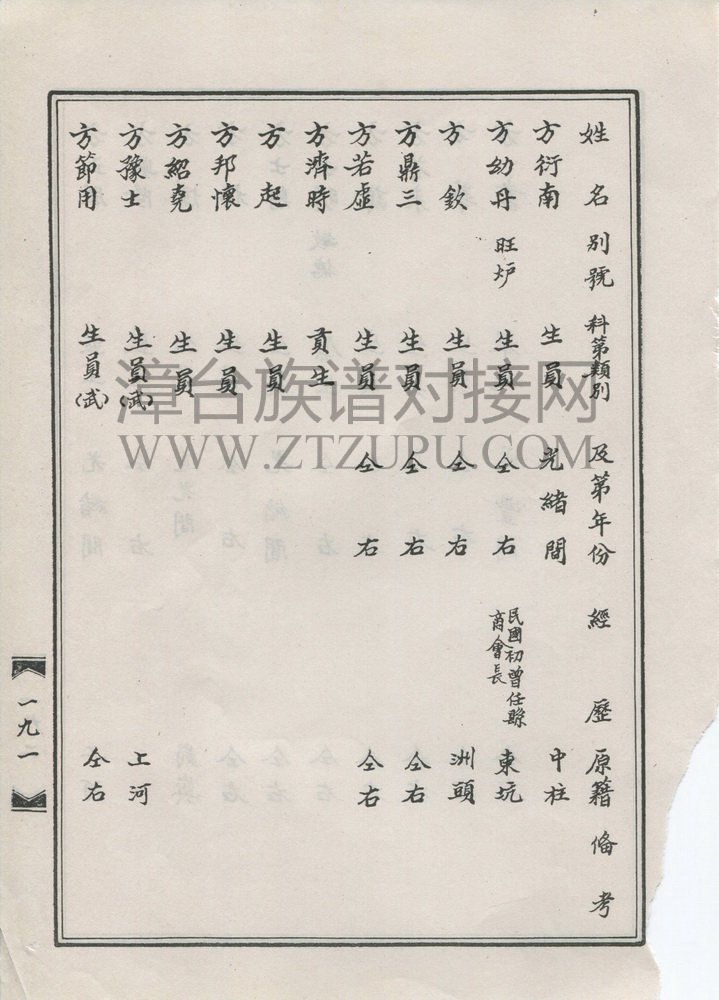 姓名 別號 科第類別 及第年份 經歷 原籍 備考
方衍南 生員 光緒間 中柱
方幼丹 旺炉 生員 仝右 民國初曾任縣商會長 東坑
方欽 生員 仝右 洲頭
方鼎三 生員 仝右 仝右
方若虛 生員 仝右 仝右
方濟時 貢生
方起 生員
方邦懷 生員
方紹堯 生員
方豫士 生員(武) 上河
方節用 生員(武) 仝右
一九一
漳台族谱对接网
WWW.ZTZUPU.COM